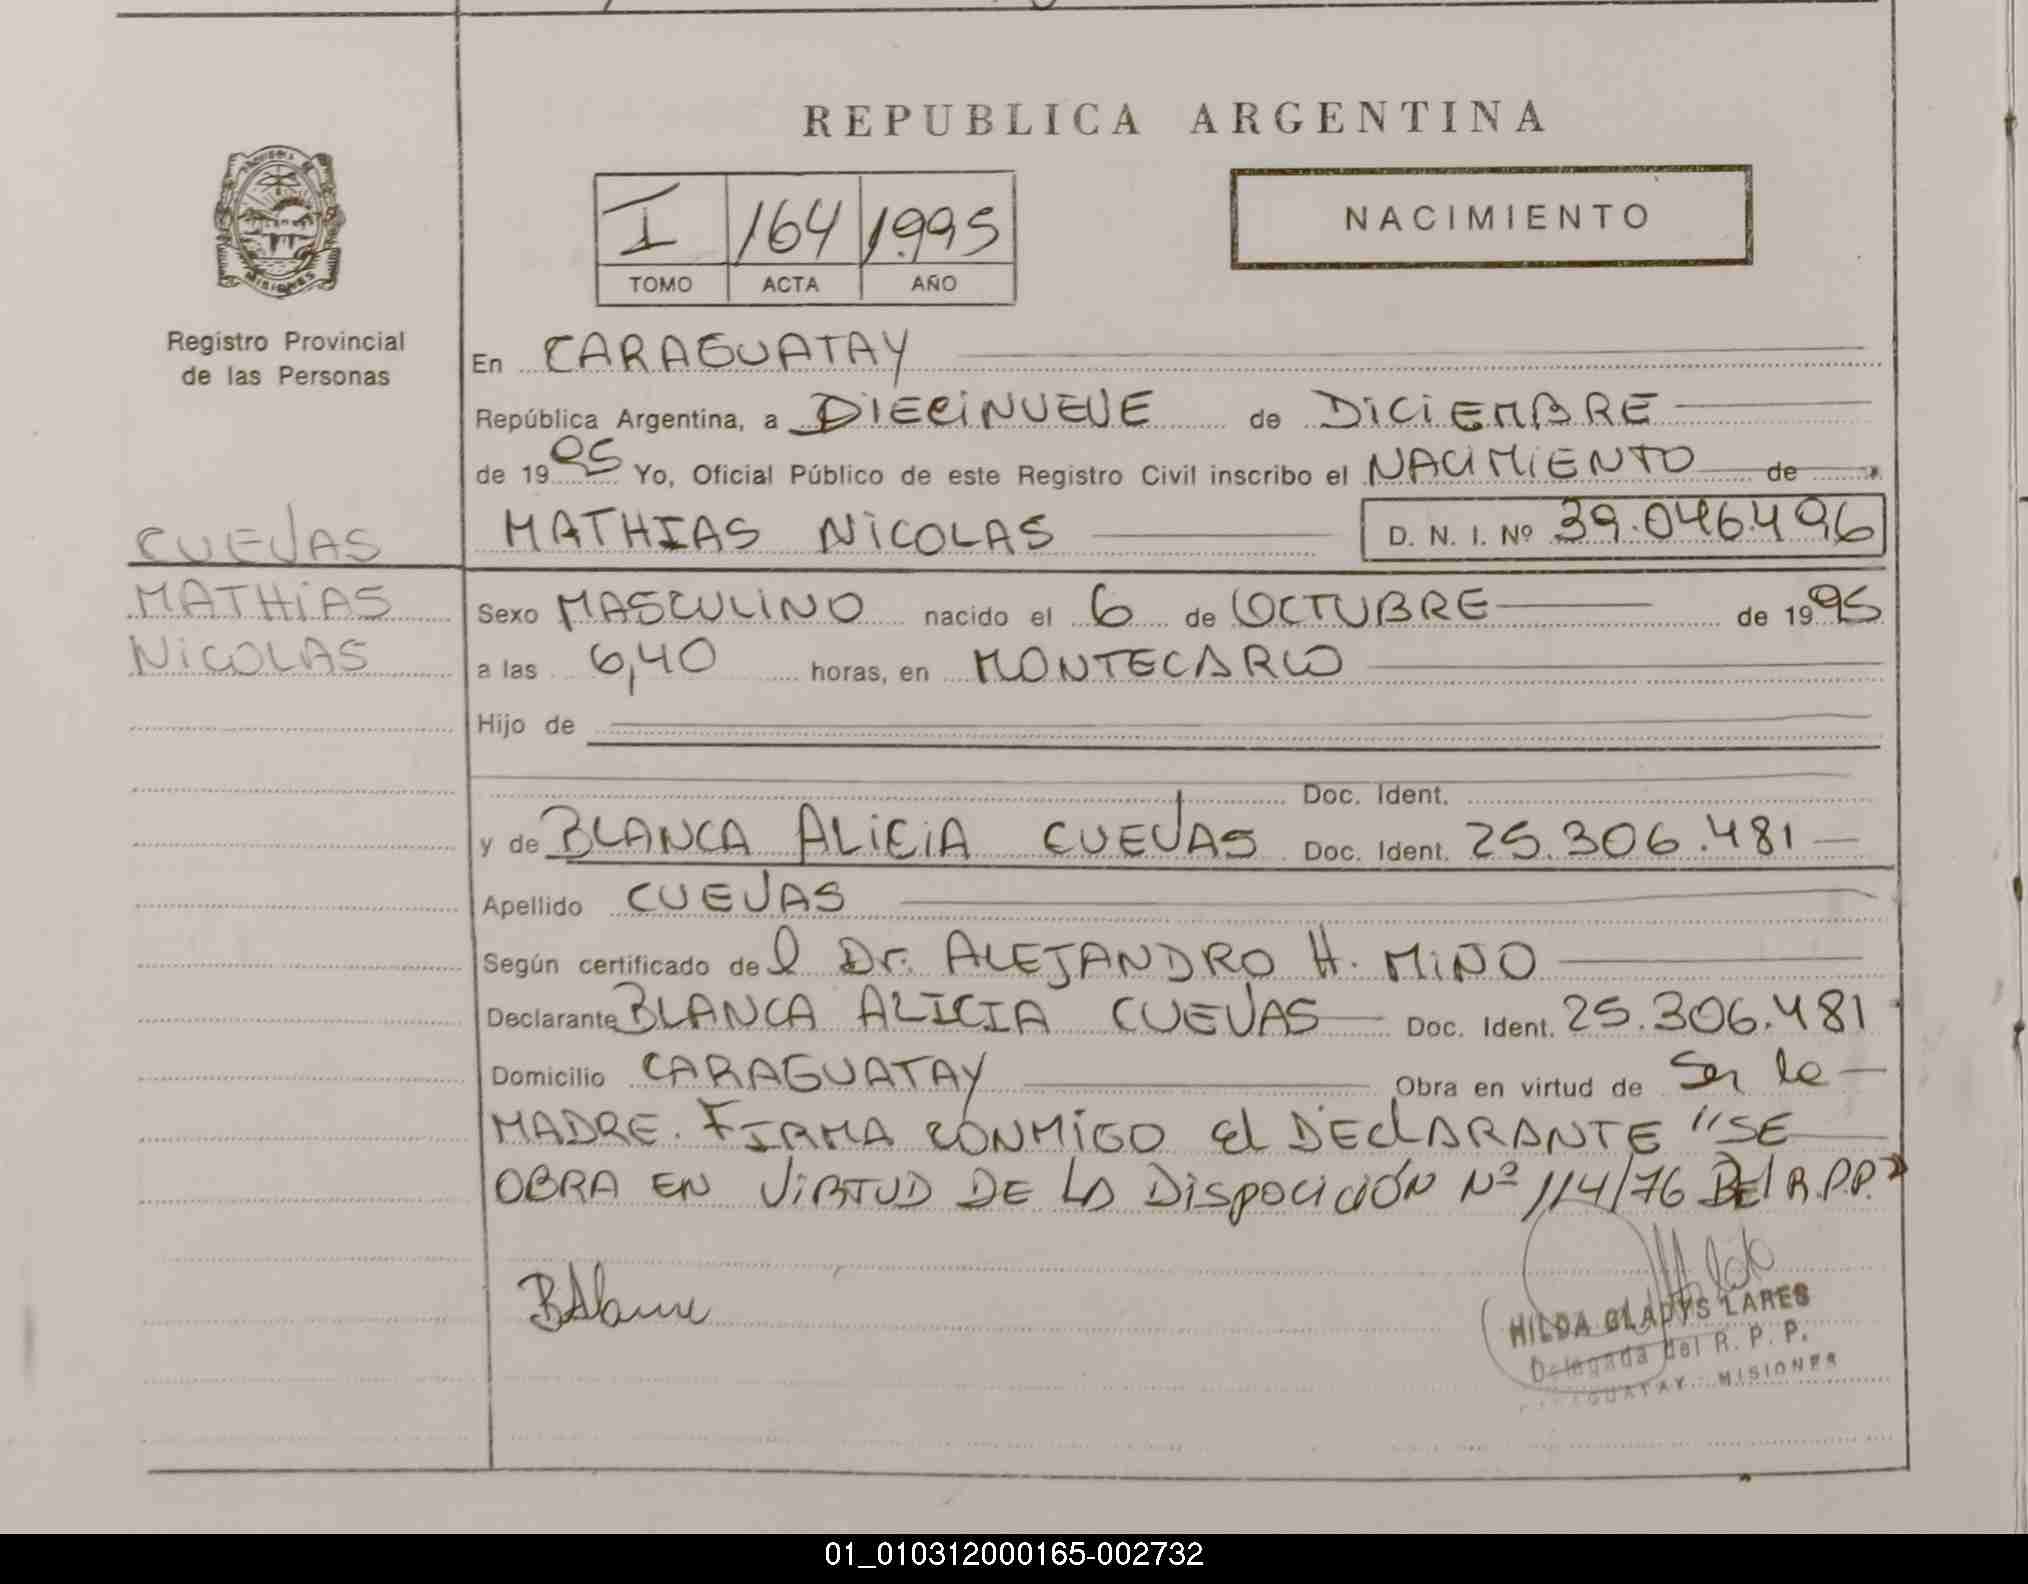 REPUBLICA ARGENTINA
I 164 1995
TOMO ACTA AÑO
NACIMIENTO
PROVINCIA DE
MISIONES
Registro Provincial
de las Personas
CUEVAS
MATHIAS
NICOLAS
En CARAGUATAY
República Argentina, a DIECINUEVE de DICIEMBRE
de 1995 Yo, Oficial Público de este Registro Civil inscribo el NACIMIENTO de
MATHIAS NICOLAS D. N. I. Nº 39.046.496
Sexo MASCULINO nacido el 6 de OCTUBRE de 1995
a las 6,40 horas, en MONTECARLO
Hijo de
Doc. Ident.
y de BLANCA ALICIA CUEVAS Doc. Ident. 25.306.481
Apellido CUEVAS
Según certificado del Dr. ALEJANDRO H. MIÑO
Declarante BLANCA ALICIA CUEVAS Doc. Ident. 25.306.481
Domicilio CARAGUATAY Obra en virtud de Ser la
MADRE. FIRMA CONMIGO El DEClARANTE "SE
OBRA EN VIRTUD DE LA DISpOCICIÓN Nº 114/76 DEl R.P.P."
HILDA GLADYS LARES
Delegada del R. P. P.
CARAGUATAY - MISIONES
01_010312000165-002732